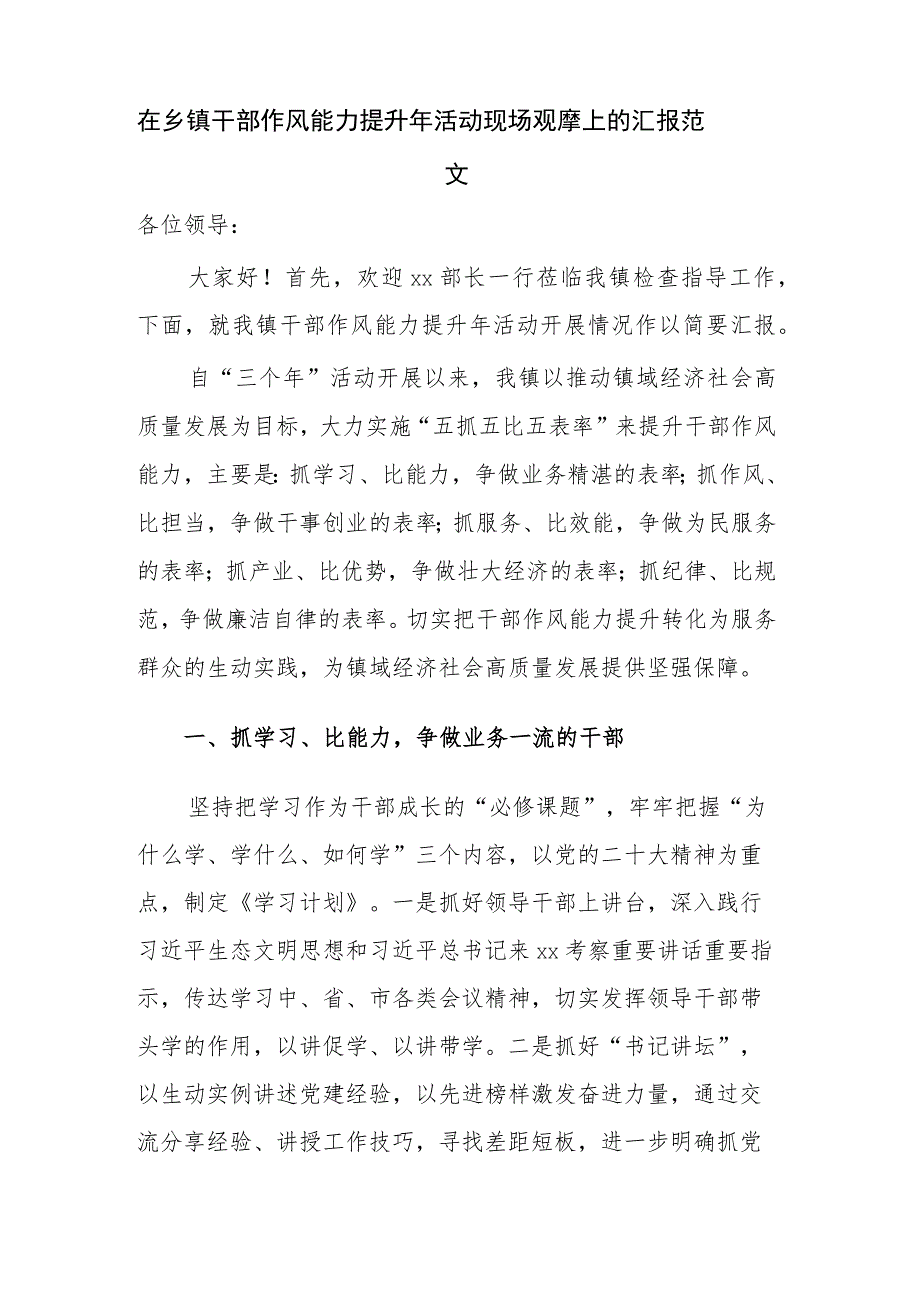 在乡镇干部作风能力提升年活动现场观摩上的汇报范
文
各位领导：
大家好！首先，欢迎 xx 部长一行莅临我镇检查指导工作，
下面，就我镇干部作风能力提升年活动开展情况作以简要汇报。
自“三个年”活动开展以来，我镇以推动镇域经济社会高
质量发展为目标，大力实施“五抓五比五表率”来提升干部作风
能力，主要是：抓学习、比能力，争做业务精湛的表率；抓作风、
比担当，争做干事创业的表率；抓服务、比效能，争做为民服务
的表率；抓产业、比优势，争做壮大经济的表率；抓纪律、比规
范，争做廉洁自律的表率。切实把干部作风能力提升转化为服务
群众的生动实践，为镇域经济社会高质量发展提供坚强保障。
一、抓学习、比能力，争做业务一流的干部
坚持把学习作为干部成长的“必修课题”，牢牢把握“为
什么学、学什么、如何学”三个内容，以党的二十大精神为重
点，制定《学习计划》。一是抓好领导干部上讲台，深入践行
习近平生态文明思想和习近平总书记来 xx 考察重要讲话重要指
示，传达学习中、省、市各类会议精神，切实发挥领导干部带
头学的作用，以讲促学、以讲带学。二是抓好“书记讲坛”，
以生动实例讲述党建经验，以先进榜样激发奋进力量，通过交
流分享经验、讲授工作技巧，寻找差距短板，进一步明确抓党